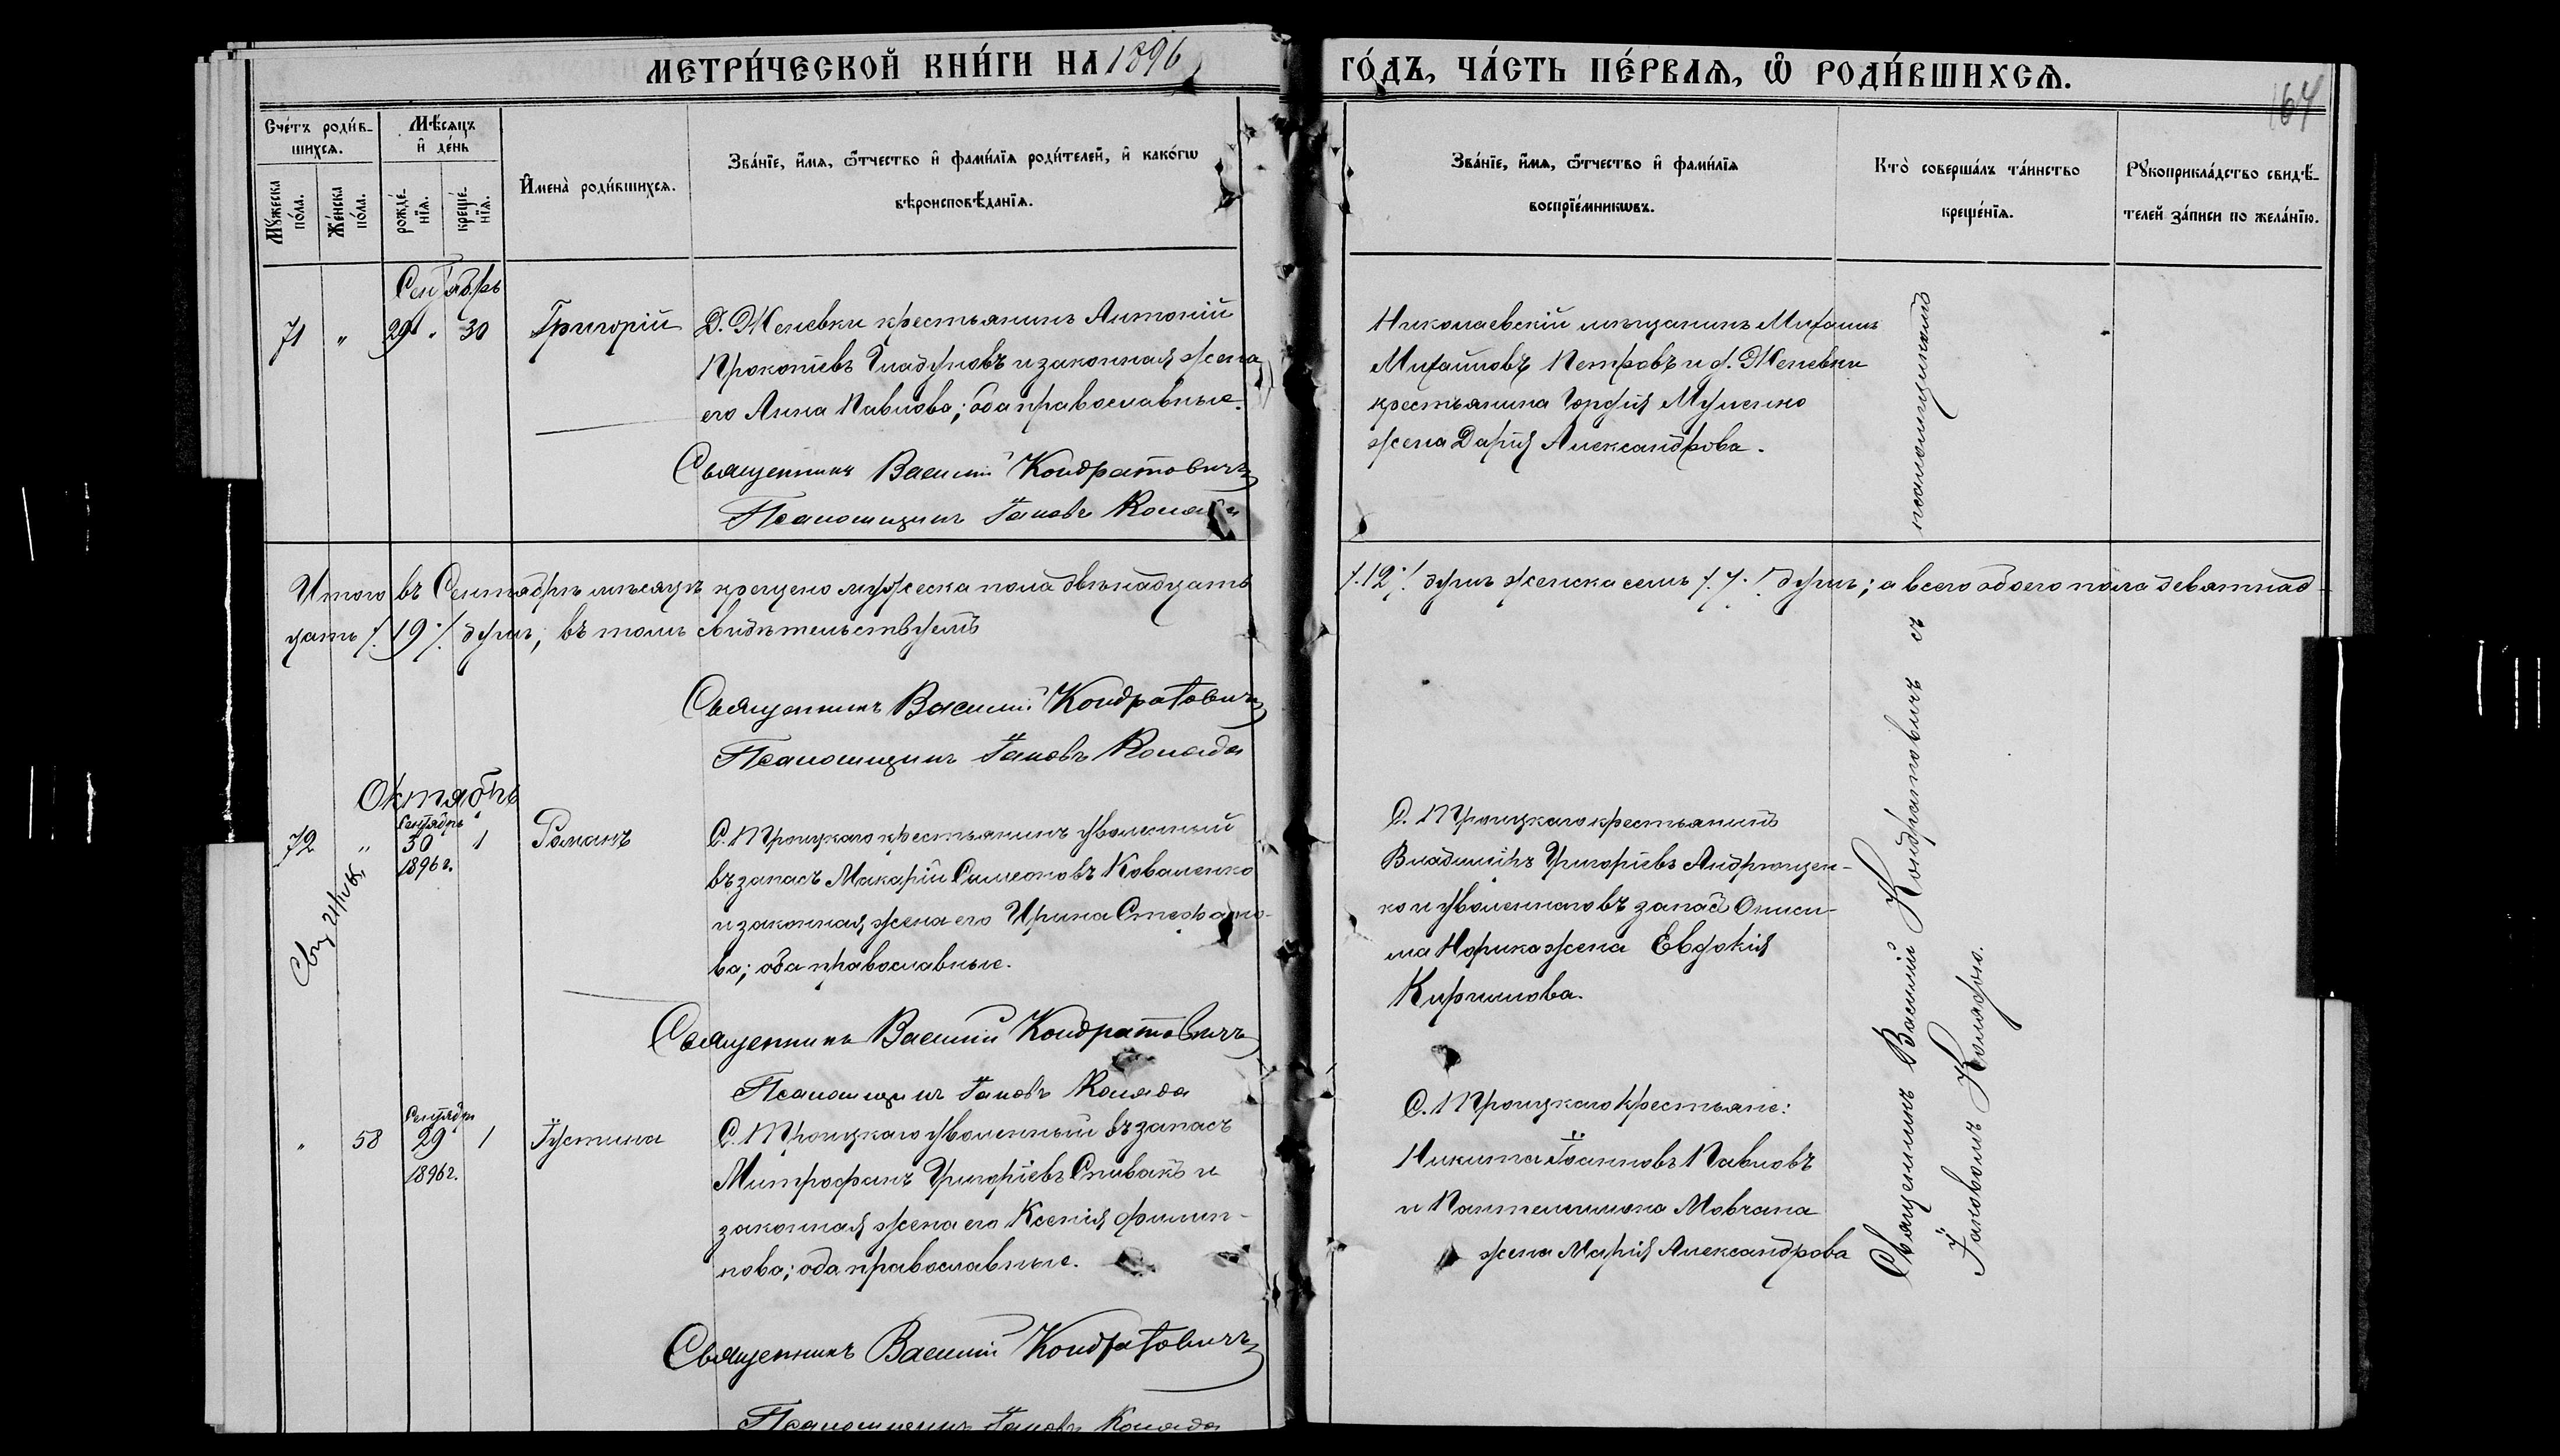 МЕТРИ́ЧЕСКОЙ КНИ́ГИ НА 1896
ГО́ДЪ, ЧА́СТЬ ПЕ́РВАѦ, Ѽ РОДИ́ВШИХСѦ.
164
Счéтъ роди́в-
шихсѧ.
Мꙋ́жеска
по́ла.
Же́нска
по́ла.
Мѣ́сѧцъ
и҆ де́нь
рожде́-
нїѧ.
креще́-
нїѧ.
И҆мена̀ роди́вшихсѧ.
Зва́нїе, и҆́мѧ, ѻ҆́тчество и҆ фами́лїѧ роди́телей, и҆ како́гѡ
вѣроисповѣ́данїѧ.
Зва́нїе, и҆́мѧ, ѻ҆́тчество и҆ фами́лїѧ
воспрїе́мникѡвъ.
Кто̀ соверша́лъ та́инство
креще́нїѧ.
Рꙋкоприкла́дство свидѣ́-
телей за́писи по жела́нїю.
Сентябрь
71 " 29 " 30 Григорій
Д. Женевки крестьянинъ Антоній
Прокопіевъ Гладуновъ и законная жена
его Анна Павлова; оба православные.
Священникъ Василій Кондратовичъ
Псаломщикъ Іаковъ Коляда
Николаевскій мѣщанинъ Михаилъ
Михаиловъ Петровъ и д. Женевки
крестьянина Гордія
жена Дарія Александрова.
Итого въ Сентябрѣ мѣсяцѣ крещено мужеска пола двѣнадцать
/.12./ душъ женска семь /.7./ душъ; а всего обоего пола девятнад-
цать /.19./ душъ, въ томъ свидѣтельствуемъ
Священникъ Василій Кондратовичъ
Псаломщикъ Іаковъ Коляда
Октябрь
72 " Сентябрь 30 1896 г. 1 Романъ
С. Троицкаго крестьянинъ уволенный
въ запасъ Макарій Симеоновъ Коваленко
и законная жена его Ирина Стефано-
ва; оба православные.
Священникъ Василій Кондратовичъ
Псаломщикъ Іаковъ Коляда
С. Троицкаго крестьянинъ
Владиміръ Григоріевъ Андрющен-
ко и уволеннаго въ запасъ Ониси-
ма жена Евдокія
Кириллова.
" 58 Сентябрь 29 1896 г. 1 Іустина
С. Троицкаго уволенный въ запасъ
Митрофанъ Григоріевъ Спивакъ и
законная жена его Ксенія Филип-
пова; оба православные.
Священникъ Василій Кондратовичъ
Псаломщикъ Іаковъ Коляда
С. Троицкаго крестьяне:
Никита Іоанновъ Павловъ
и Пантелиимона Мовчана
жена Марія Александрова
Священникъ Василій Кондратовичъ съ псаломщикомъ
Іаковомъ Колядою.